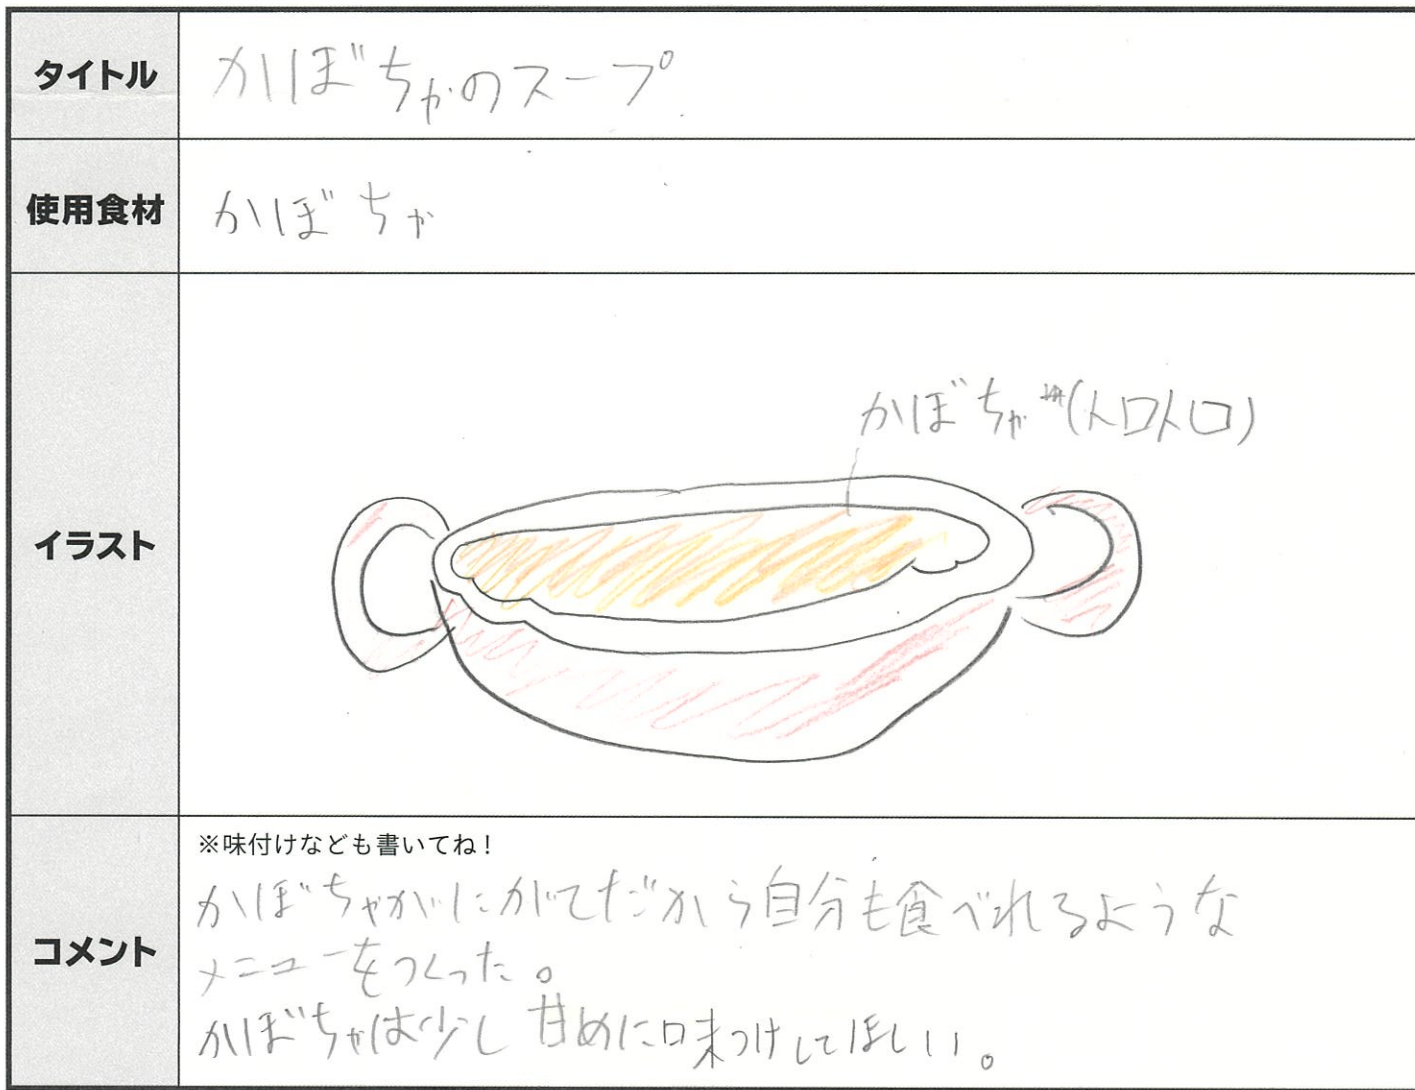 タイトル
かぼちゃのスープ
使用食材
かぼちゃ
イラスト
かぼちゃ(トロトロ)
コメント
※味付けなども書いてね！
かぼちゃがにがてだから自分も食べれるような
メニューをつくった。
かぼちゃは少し甘めに味つけしてほしい。